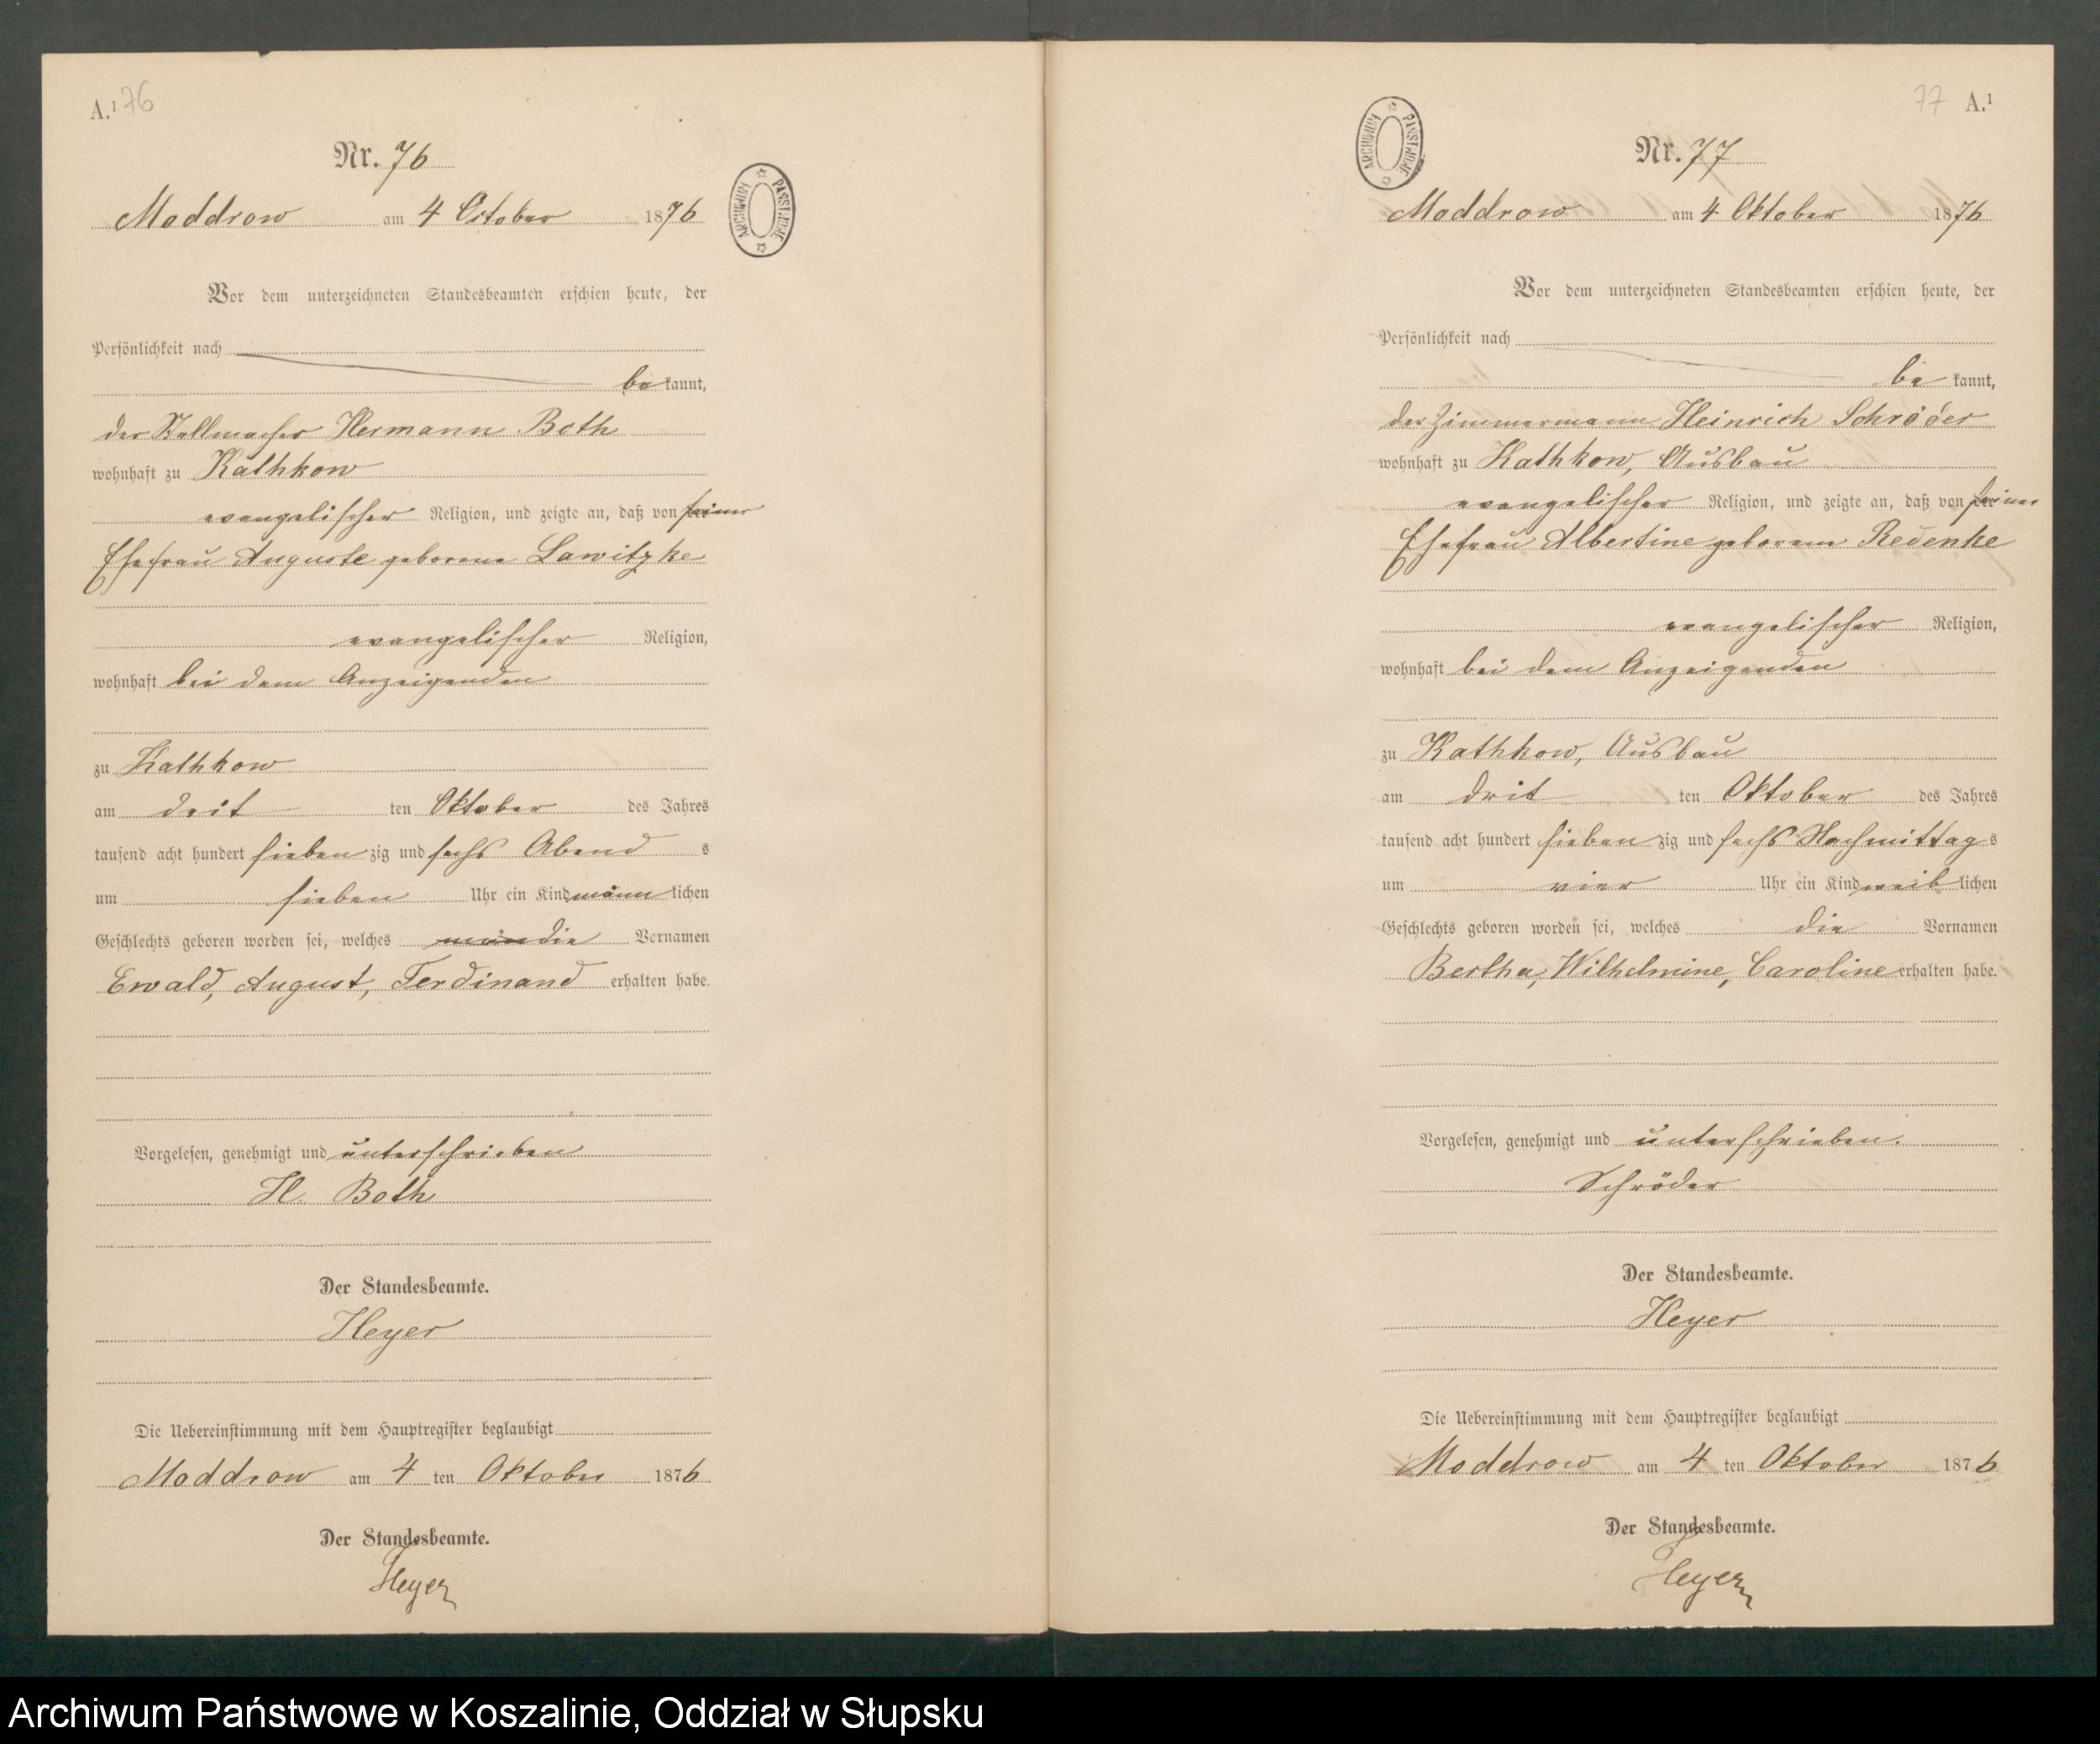 A.¹ 76
Nr. 76
Moddrow am 4 October 1876
ARCHIWUM PAŃSTWOWE
Vor dem unterzeichneten Standesbeamten erschien heute, der
Persönlichkeit nach
be kannt,
der Stellmacher Hermann Both
wohnhaft zu Kathkow
evangelischer Religion, und zeigte an, daß von seiner
Ehefrau Auguste geborene Lawitzke
evangelischer Religion,
wohnhaft bei dem Anzeigenden
zu Kathkow
am drit ten Oktober des Jahres
tausend acht hundert sieben zig und sechs Abend s
um sieben Uhr ein Kind männ lichen
Geschlechts geboren worden sei, welches die Vornamen
Ewald, August, Ferdinand erhalten habe.
Vorgelesen, genehmigt und unterschrieben
H. Both
Der Standesbeamte.
Heyer
Die Uebereinstimmung mit dem Hauptregister beglaubigt
Moddrow am 4 ten Oktober 1876
Der Standesbeamte.
Heyer
77 A.¹
ARCHIWUM PAŃSTWOWE
Nr. 77
Moddrow am 4 Oktober 1876
Vor dem unterzeichneten Standesbeamten erschien heute, der
Persönlichkeit nach
be kannt,
der Zimmermann Heinrich Schröder
wohnhaft zu Kathkow, Ausbau
evangelischer Religion, und zeigte an, daß von seiner
Ehefrau Albertine geborene Redenke
evangelischer Religion,
wohnhaft bei dem Anzeigenden
zu Kathkow, Ausbau
am drit ten Oktober des Jahres
tausend acht hundert sieben zig und sechs Nachmittag s
um vier Uhr ein Kind weib lichen
Geschlechts geboren worden sei, welches die Vornamen
Bertha, Wilhelmine, Caroline erhalten habe.
Vorgelesen, genehmigt und unterschrieben.
Schröder
Der Standesbeamte.
Heyer
Die Uebereinstimmung mit dem Hauptregister beglaubigt
Moddrow am 4 ten Oktober 1876
Der Standesbeamte.
Heyer
Archiwum Państwowe w Koszalinie, Oddział w Słupsku